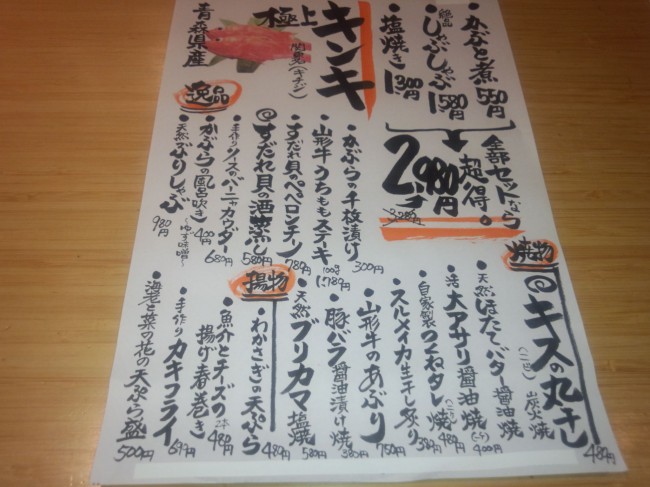 青森県産
極上
キンキ
(キチジ)
・塩焼き 1,300円
・しゃぶしゃぶ 1,580円
・かぶと煮 550円
全部セットなら
超得。
2,980円
逸品
・かぶらの千枚漬け 300円
・山形牛うちももステーキ 100g 1,780円
・すだれ貝のペペロンチーノ 780円
・すだれ貝の酒蒸し 580円
・手作りソースのバーニャカウダー 680円
・かぶらの風呂吹き~ゆず味噌~ 400円
・天然ぶりしゃぶ 980円
焼物
キスの丸干し 炭火焼 480円
・天然ほたてバター醤油焼 400円
・活大アサリ醤油焼 480円
・自家製つくねタレ焼 380円
・スルメイカ生干し炙り 750円
・山形牛のあぶり
・豚バラ醤油漬け焼 380円
・天然ブリカマ塩焼 580円
揚物
・わかさぎの天ぷら 480円
・魚介とチーズの揚げ春巻き 2本 480円
・手作りカキフライ
・海老と菜の花の天ぷら盛 500円